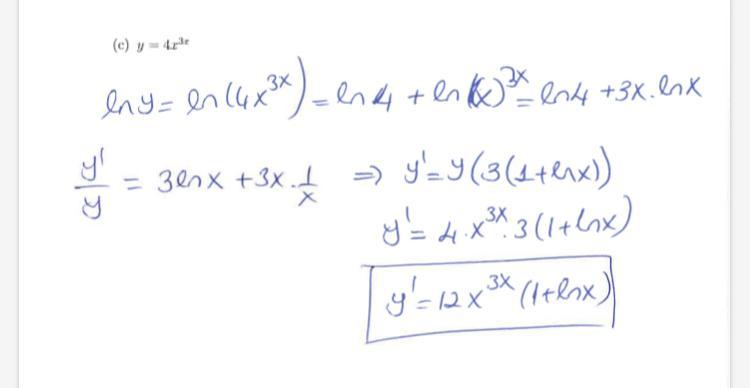 (c) y = 4x^{3x}
ln y = ln(4x^{3x}) = ln 4 + ln(x)^{3x} = ln4 + 3x.lnx
y'/y = 3lnx + 3x.1/x ⇒ y' = y(3(1+lnx))
y' = 4.x^{3x}.3(1+lnx)
y' = 12x^{3x}(1+lnx)